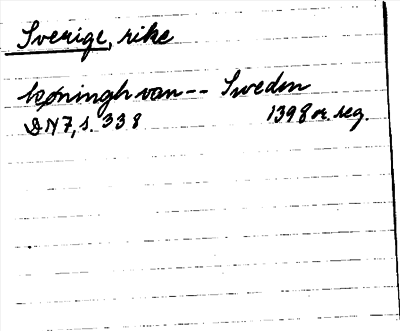 Sverige, rike
kǫningh van -- Sweden
DN 7, s. 338 1398 or. reg.